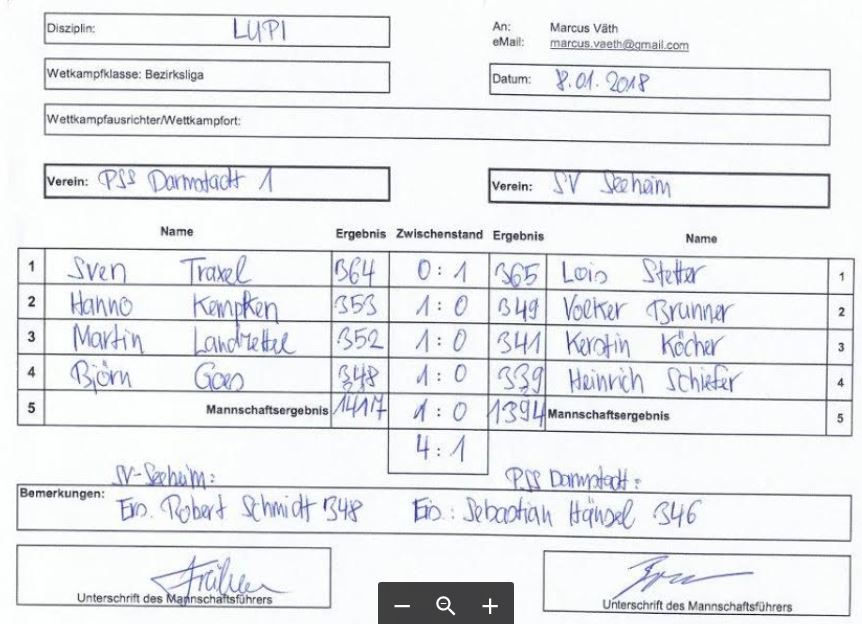 Disziplin: LUPI
An: Marcus Väth
eMail: marcus.vaeth@gmail.com
Wetkampfklasse: Bezirksliga
Datum: 8.01.2018
Wettkampfausrichter/Wettkampfort:
Verein: PSS Darmstadt 1 Verein: SV Seeheim
Name Ergebnis Zwischenstand Ergebnis Name
1 Sven Traxel 364 0:1 365 Lois Stetter 1
2 Hanno Kempken 353 1:0 349 Volker Brunner 2
3 Martin Landzettel 352 1:0 341 Kerstin Köcher 3
4 Björn Goes 348 1:0 339 Heinrich Schiefer 4
5 Mannschaftsergebnis 1417 1:0 1394 Mannschaftsergebnis 5
4:1
SV-Seeheim: PSS Darmstadt:
Bemerkungen: Ers. Robert Schmidt 348 Ers.: Sebastian Hänsel 346
Unterschrift des Mannschaftsführers Unterschrift des Mannschaftsführers